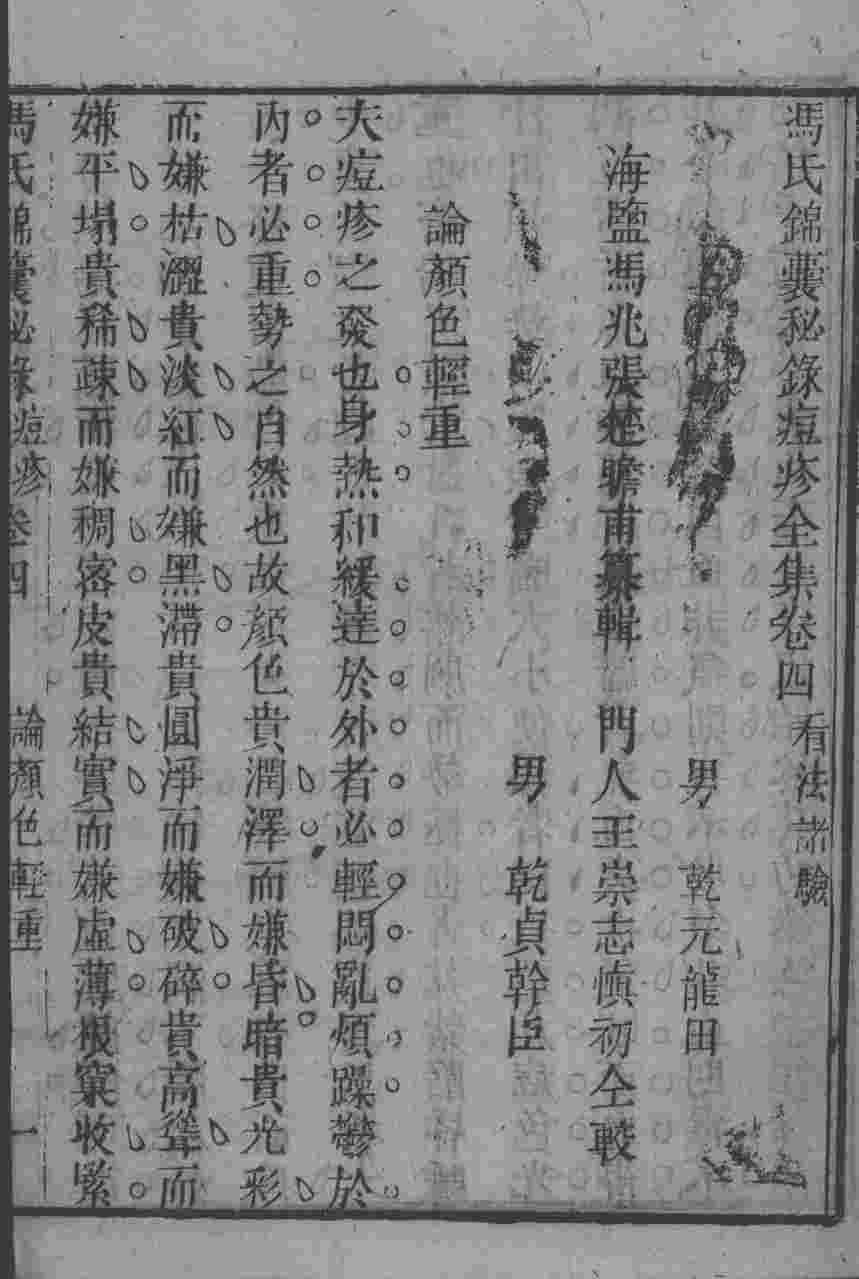 馮氏錦囊秘錄痘疹全集卷四 看法諸驗
男 乾元龍田
海鹽馮兆張楚瞻甫纂輯 門人王崇志慎初仝較
男 乾貞幹臣
論顏色輕重
夫痘疹之發也身熱和緩達於外者必輕悶亂煩躁鬱於
內者必重勢之自然也故顏色貴潤澤而嫌昏暗貴光彩
而嫌枯澀貴淡紅而嫌黑滯貴圓淨而嫌破碎貴高聳而
嫌平塌貴稀疎而嫌稠密皮貴結實而嫌虛薄根窠收緊
馮氏錦囊秘錄痘疹卷四 論顏色輕重 一